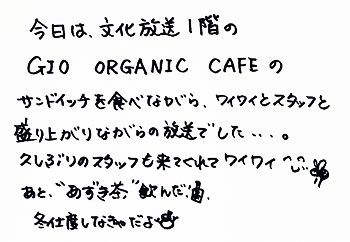 今日は、文化放送1階の
GIO ORGANIC CAFEの
サンドイッチを食べながら、ワイワイとスタッフと
盛り上がりながらの放送でした...。
久しぶりのスタッフも来てくれてワイワイ^^
あと、"あずき茶"飲んだ。
冬仕度しなきゃだよ